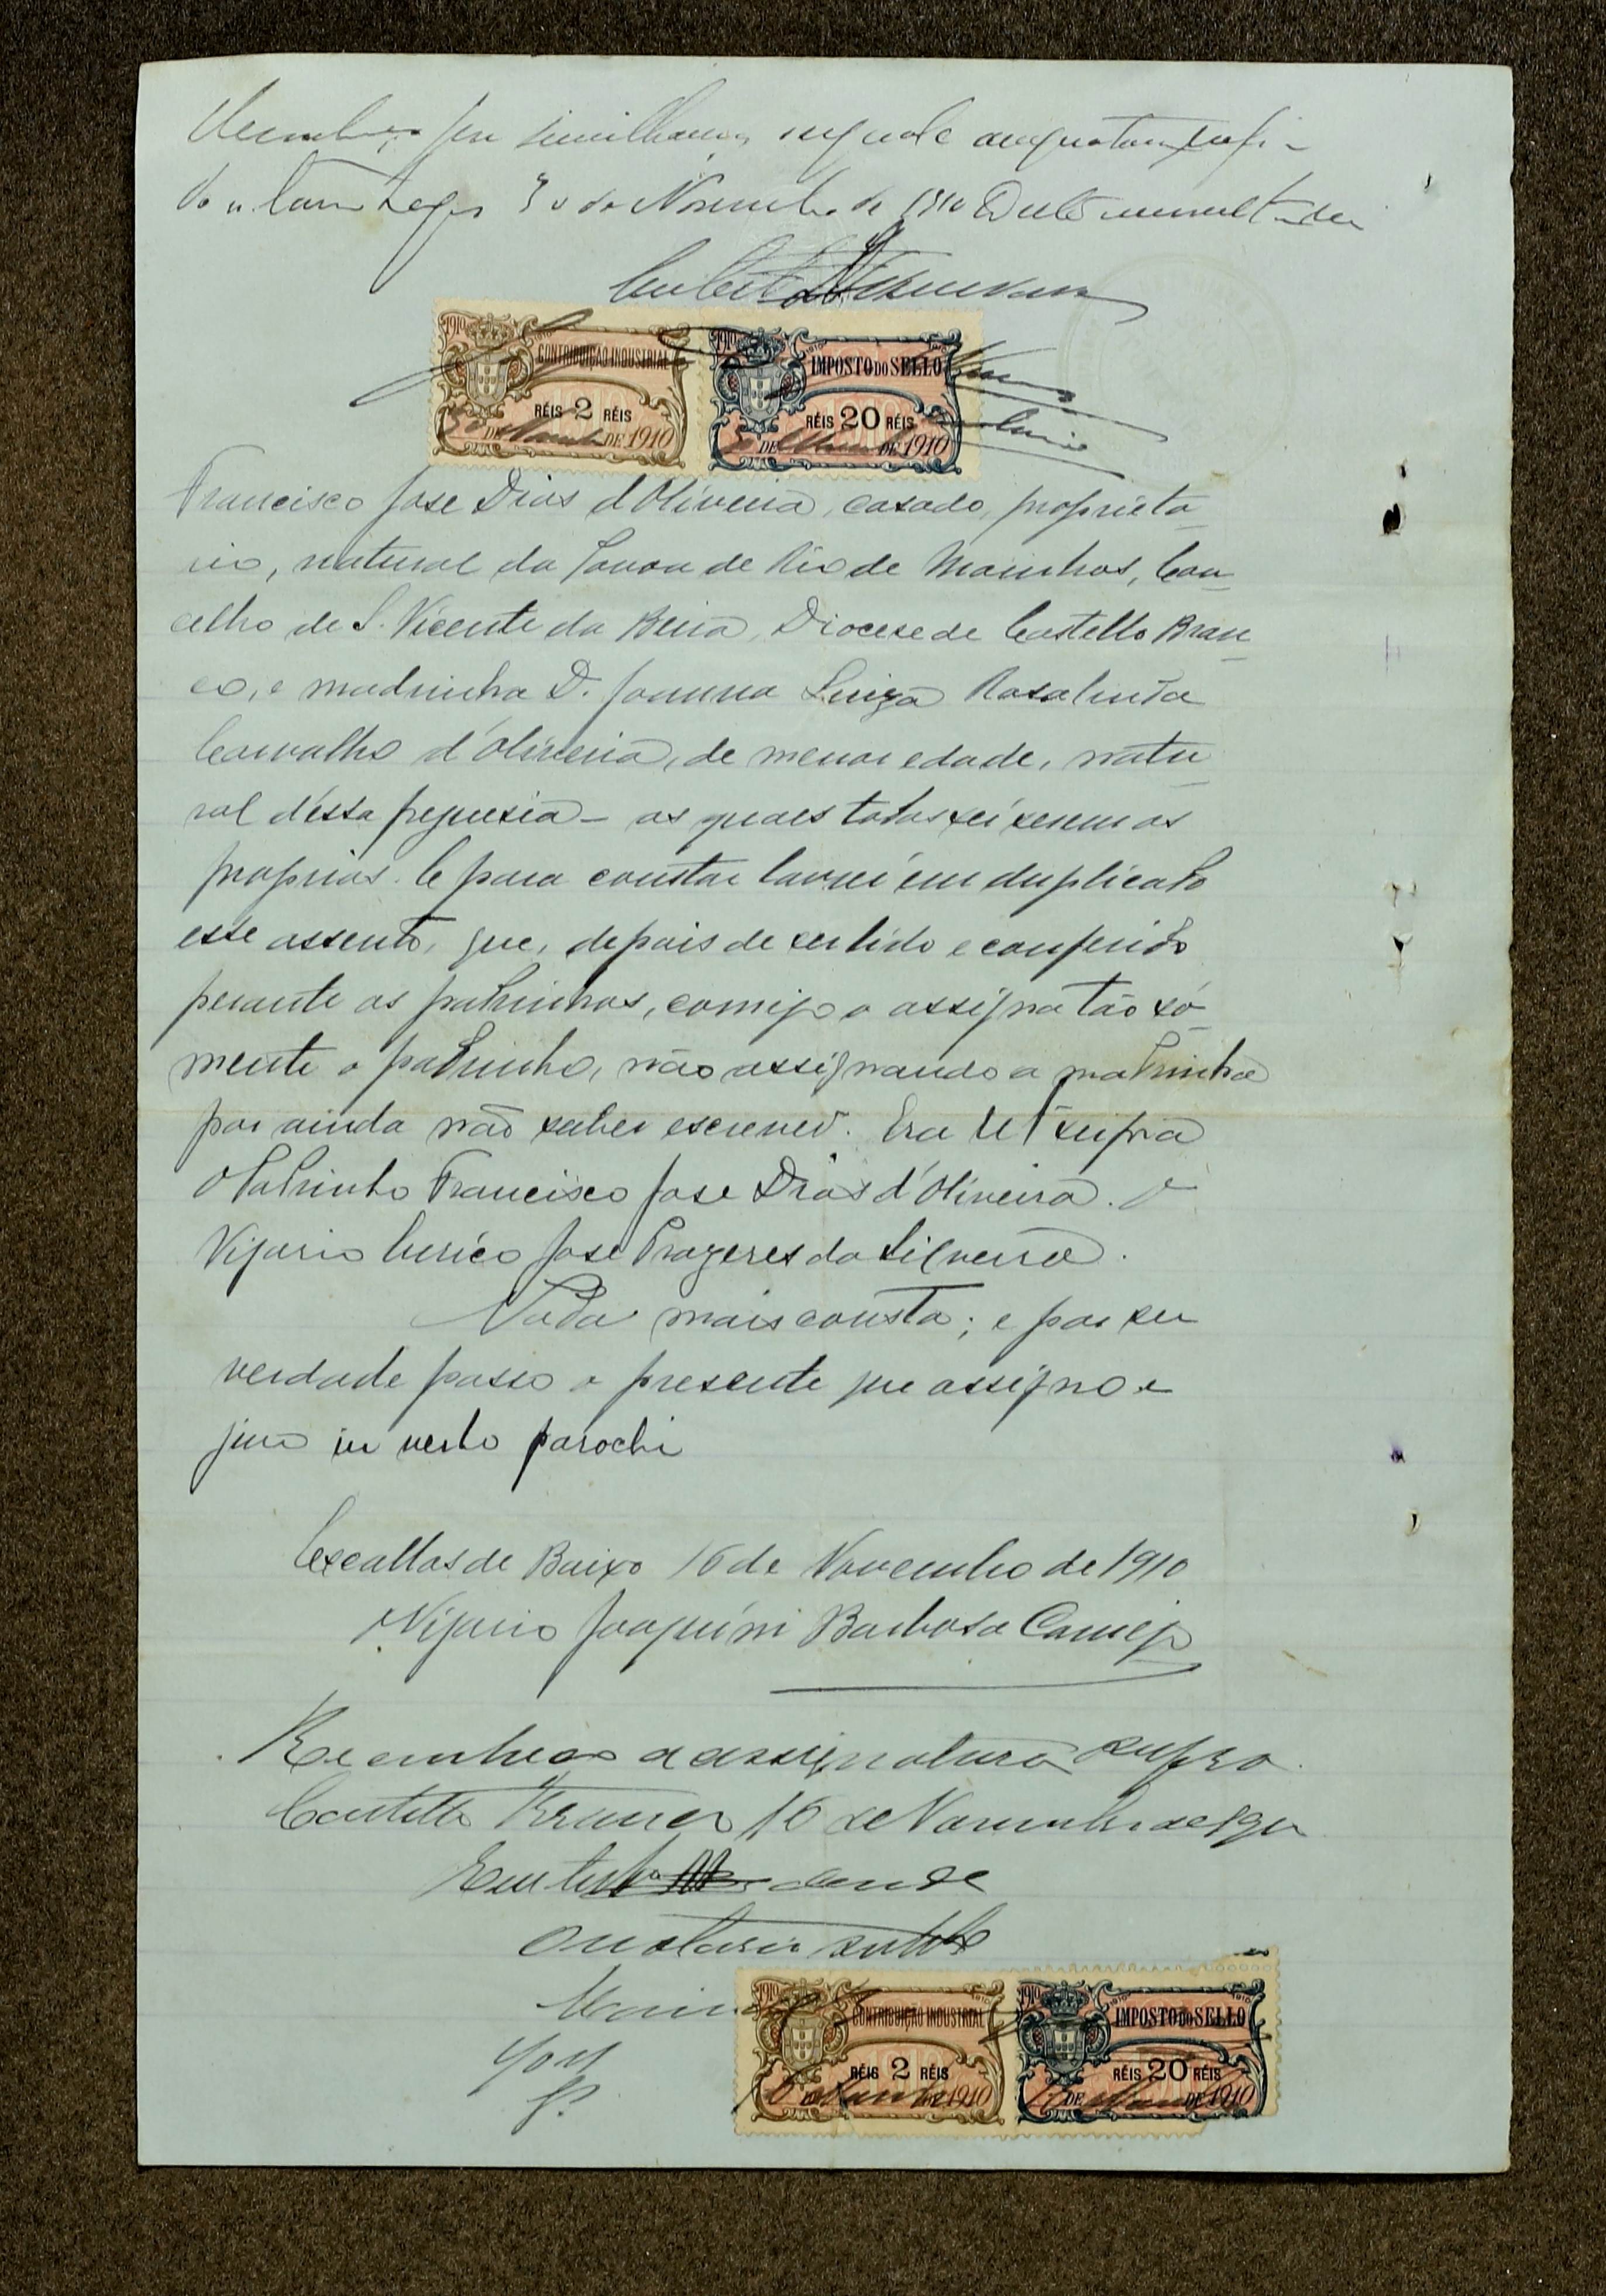 por similhança, segundo
Portalegre 30 de Novembro de 1910
1910 CONTRIBUIÇÃO INDUSTRIAL 1910 IMPOSTO DO SELLO
RÉIS 2 RÉIS RÉIS 20 RÉIS
30 DE Novembro DE 1910 30 DE Novembro DE 1910
Francisco Jose Dias d'Oliveira, casado, proprieta-
rio, natural da Povoa de Rio de Moinhos, Con-
celho de S. Vicente da Beira, Diocese de Castello Bran-
co, e madrinha D. Joanna Luiza Rosalinda
Carvalho d'Oliveira, de menor edade, natu-
ral d'esta freguesia - os quaes todos sei serem os
proprios. E para constar lavrei em duplicado
este assento, que, depois de ser lido e conferido
perante os padrinhos, comigo o assigna tão só-
mente o padrinho, não assignando a madrinha
por ainda não saber escrever. Era ut supra
O Padrinho Francisco Jose Dias d'Oliveira. O
Vigario Eurico Jose Prazeres da Silveira.
Nada mais consta; e por ser
verdade passo o presente que assigno e
juro in verbo parochi
Escallos de Baixo 16 de Novembro de 1910
O Vigario Joaquim Barbosa Camejo
Reconheço a assignatura supra
Castello Branco 16 de Novembro de 1910
Em testo da verde
O notario
1910 CONTRIBUIÇÃO INDUSTRIAL 1910 IMPOSTO DO SELLO
RÉIS 2 RÉIS RÉIS 20 RÉIS
16 DE Novembro DE 1910 16 DE Novembro DE 1910